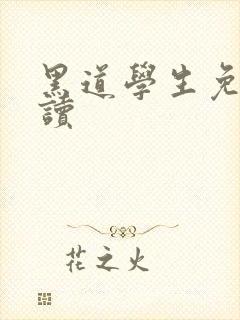 黑道學生免
讀
花之火